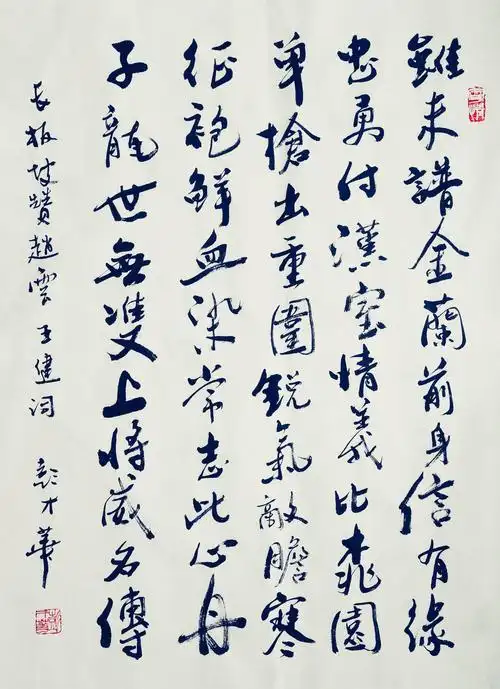 雖未譜金蘭前身信有緣
忠勇付漢室情義比桃園
單槍出重圍銳氣敵膽寒
征袍鮮血染常志此心丹
子龍世無雙上將威名傳
長板坡讚趙雲 王健詞 彭才華